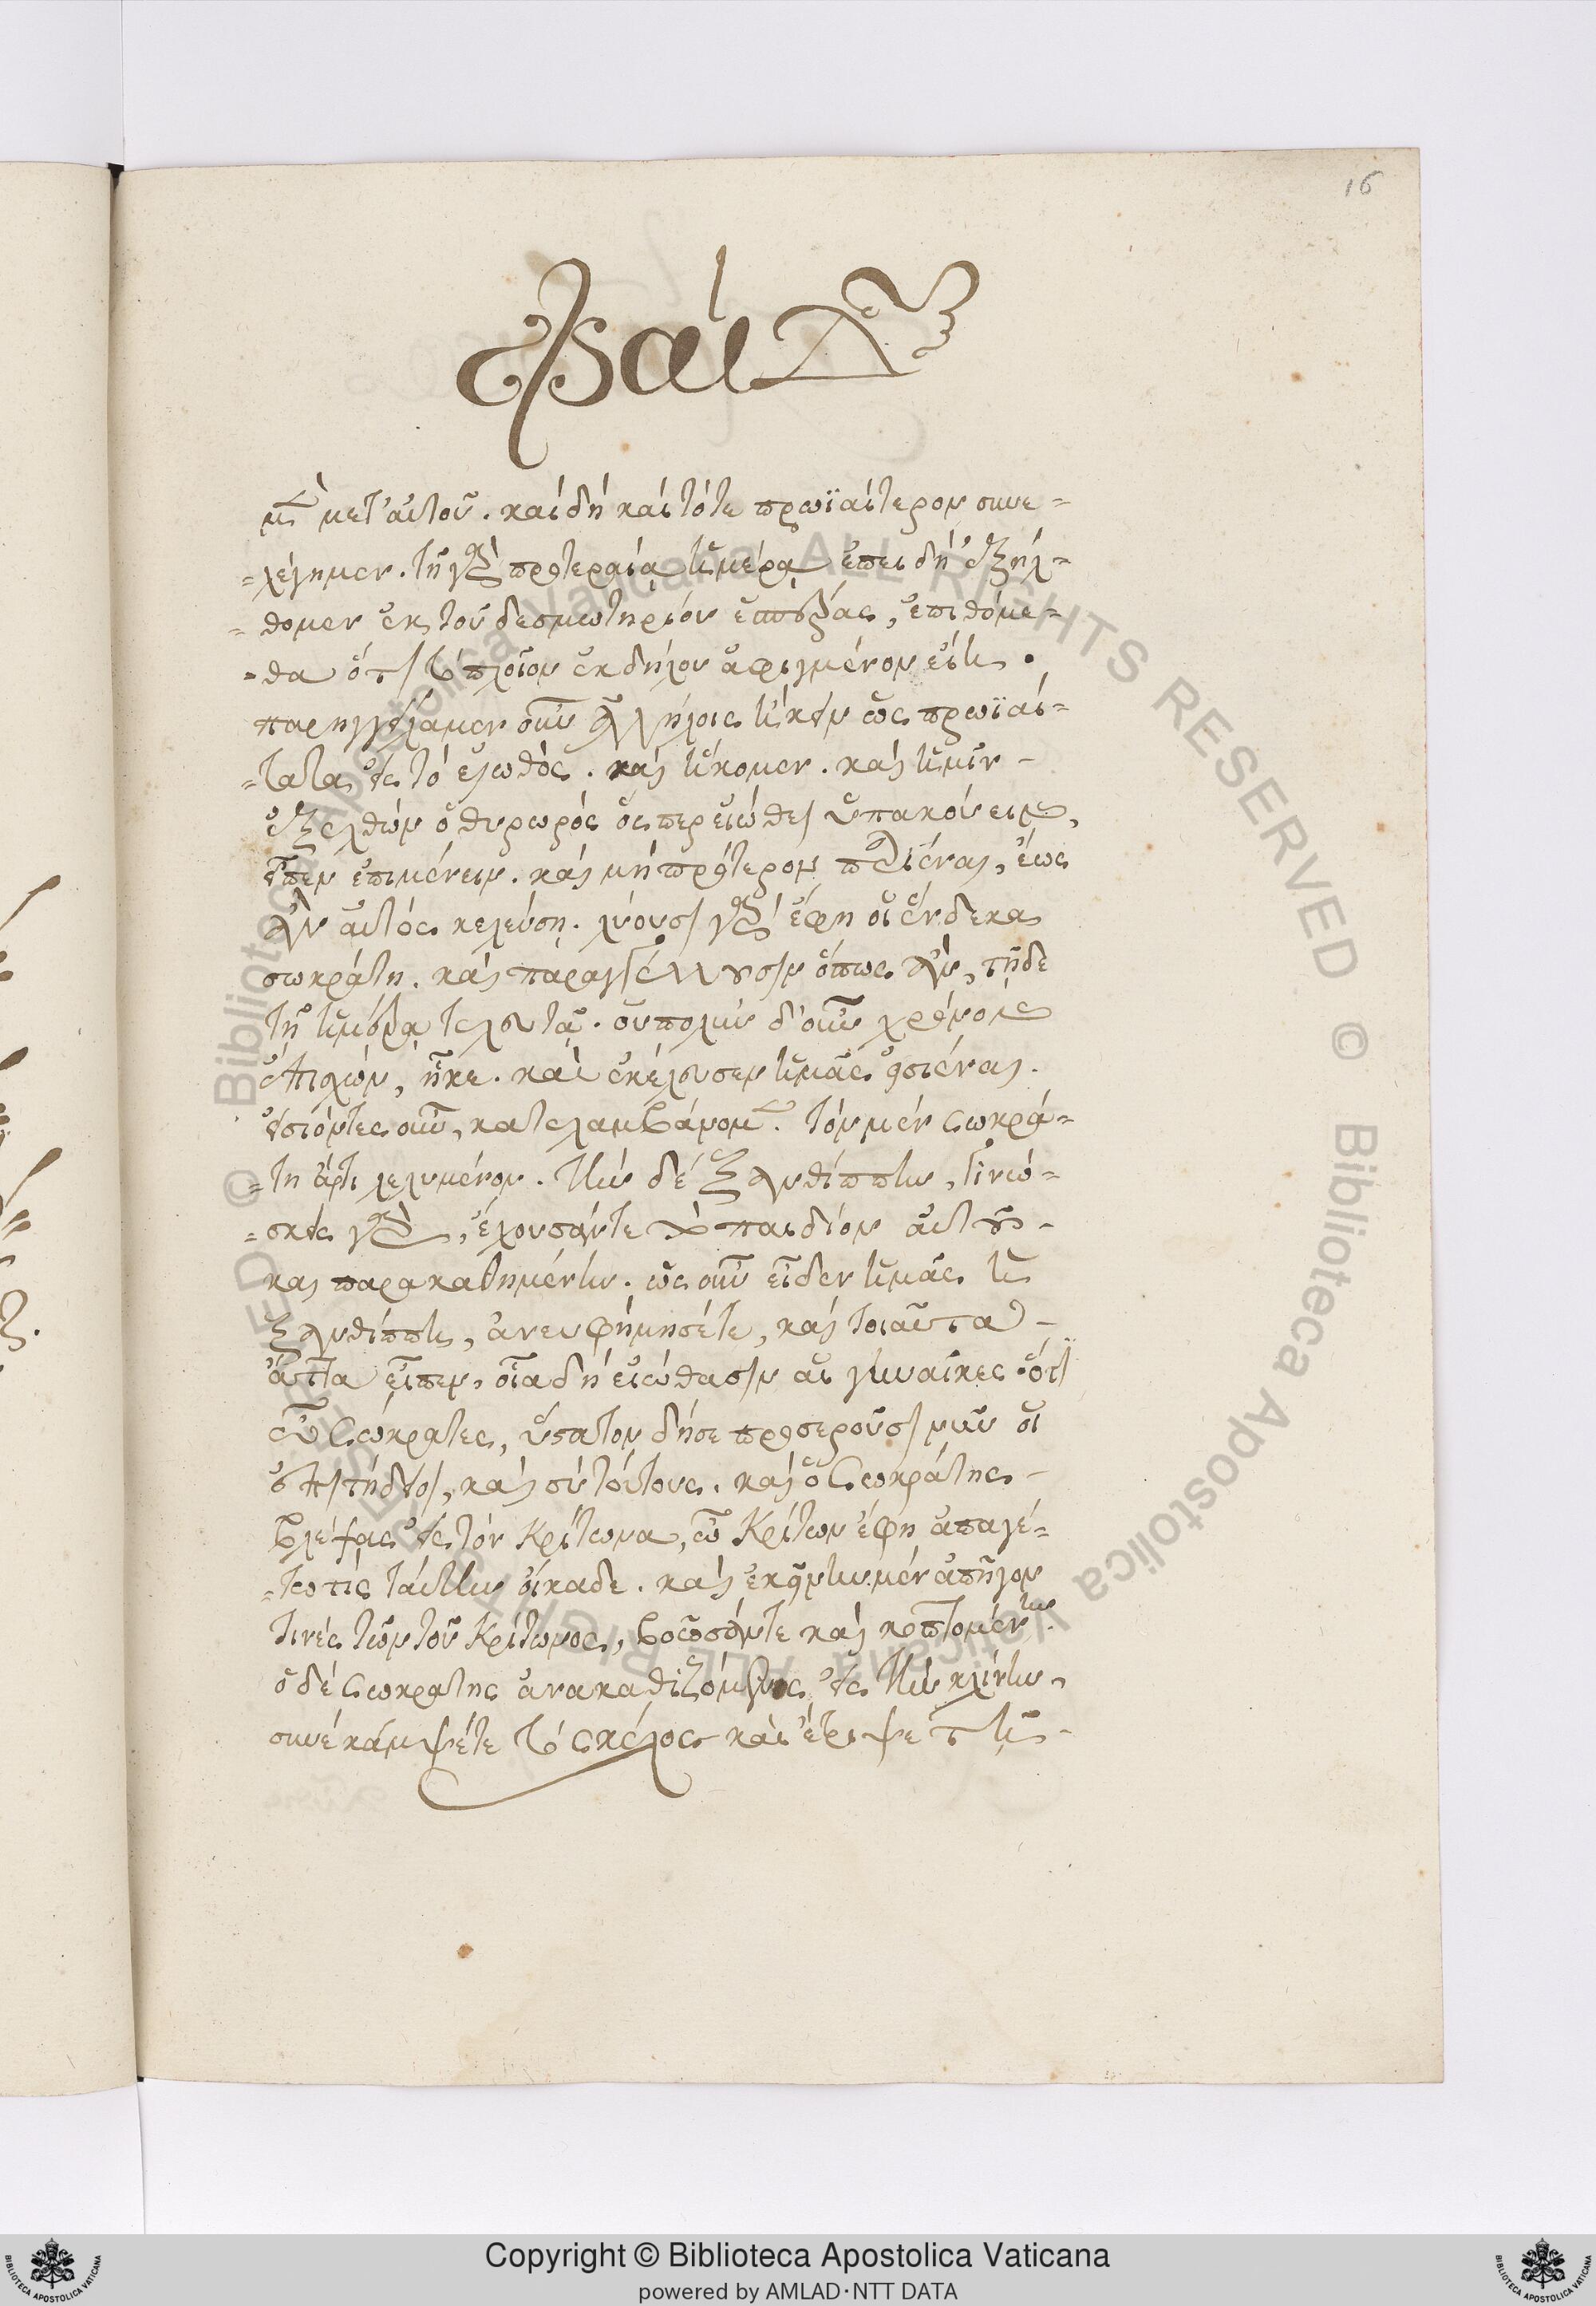 16
Φαίδων
μεν μετ' αὐτοῦ. καὶ δὴ καὶ τότε πρωϊαίτερον συνε=
=λέγημεν. τῇ γὰρ προτεραίᾳ ἡμέρᾳ ἐπειδὴ ἐξήλ=
=θομεν ἐκ τοῦ δεσμωτηρίου ἑσπέρας, ἐπιθόμε=
=θα ὅτι τὸ πλοῖον ἐκ δήλου ἀφιγμένον εἴη.
παρηγγείλαμεν οὖν ἀλλήλοις ἥκειν ὡς πρωϊαί=
=τατα εἰς τὸ εἰωθὸς. καὶ ἥκομεν. καὶ ἡμῖν
ἐξελθὼν ὁ θυρωρός ὅσπερ εἰώθει ὑπακούειν,
εἶπεν ἐπιμένειν. καὶ μὴ πρότερον παριέναι, ἕως
ἂν αὐτὸς κελεύσῃ. λύουσι γὰρ ἔφη οἱ ἕνδεκα
σωκράτη. καὶ παραγγέλλουσιν ὅπως ἂν, τῇδε
τῇ ἡμέρᾳ τελευτᾷ. οὐ πολὺν δ' οὖν χρόνον
ἐπισχὼν, ἧκε. καὶ ἐκέλευσεν ἡμᾶς εἰσιέναι.
εἰσιόντες οὖν, κατελαμβάνομεν. τὸν μὲν σωκρά=
=τη ἄρτι λελυμένον. τὴν δὲ ξανθίππην, γινώ=
=σκεις γὰρ, ἔχουσάν τε τὸ παιδίον αὐτοῦ
καὶ παρακαθημένην. ὡς οὖν εἶδεν ἡμᾶς ἡ
ξανθίππη, ἀνευφήμησέ τε, καὶ τοιαῦτα
ἄττα εἶπεν, οἷα δὴ εἰώθασιν αἱ γυναῖκες ὅτι
ὦ Σώκρατες, ὕστατον δή σε προσεροῦσι νῦν οἱ
ἐπιτήδειοι, καὶ σὺ τούτους. καὶ ὁ Σωκράτης
βλέψας εἰς τὸν Κρίτωνα, ὦ Κρίτων ἔφη ἀπαγέ=
=τω τὶς ταύτην οἴκαδε. καὶ ἐκείνην μὲν ἀπῆγον
τινὲς τῶν τοῦ Κρίτωνος, βοῶσάν τε καὶ κοπτομένην.
ὁ δὲ Σωκράτης ἀνακαθιζόμενος εἰς τὴν κλίνην,
συνέκαμψέ τε τὸ σκέλος καὶ ἔτριψε τῇ
Copyright © Biblioteca Apostolica Vaticana
powered by AMLAD·NTT DATA